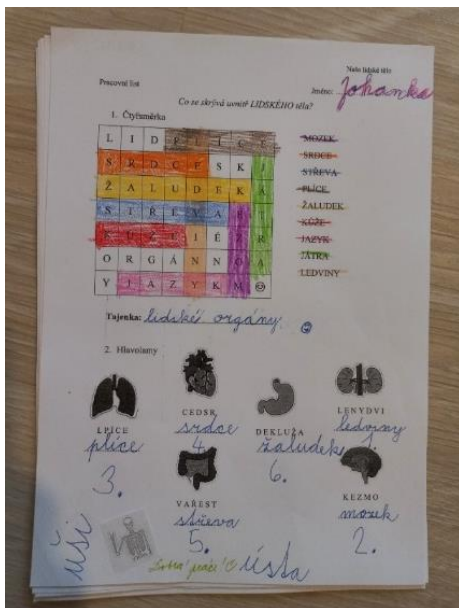 Naše lidské tělo
Pracovní list
Jméno: Johanka
Co se skrývá uvnitř LIDSKÉHO těla?
1. Čtyřsměrka
L I D P L Í C E
S R D C E S K J
Ž A L U D E K Á
S T Ř E V A T
K Ů Ž E I É Z R
O R G Á N N O A
Y J A Z Y K M
MOZEK
SRDCE
STŘEVA
PLÍCE
ŽALUDEK
KŮŽE
JAZYK
JÁTRA
LEDVINY
Tajenka: lidské orgány
2. Hlavolamy
LPÍCE
plíce
3.
CEDSR
srdce
4.
DEKLUŽA
žaludek
6.
LENYDVI
ledviny
1.
VAŘEST
střeva
5.
KEZMO
mozek
2.
Uši
Dobrá práce!
Ústa